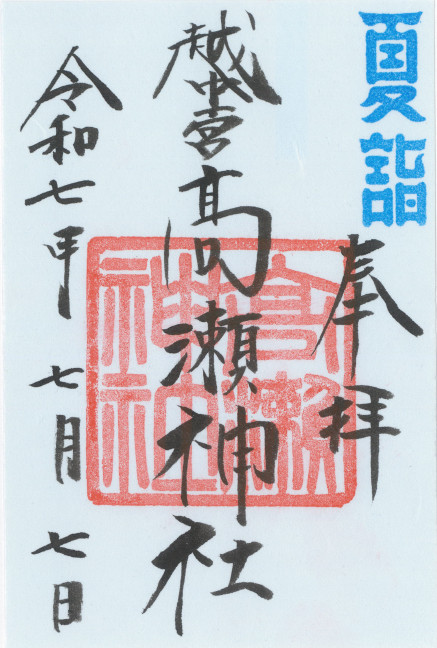 夏詣
奉拝
越中一宮
高瀬神社
令和七年七月七日
高瀬
神社